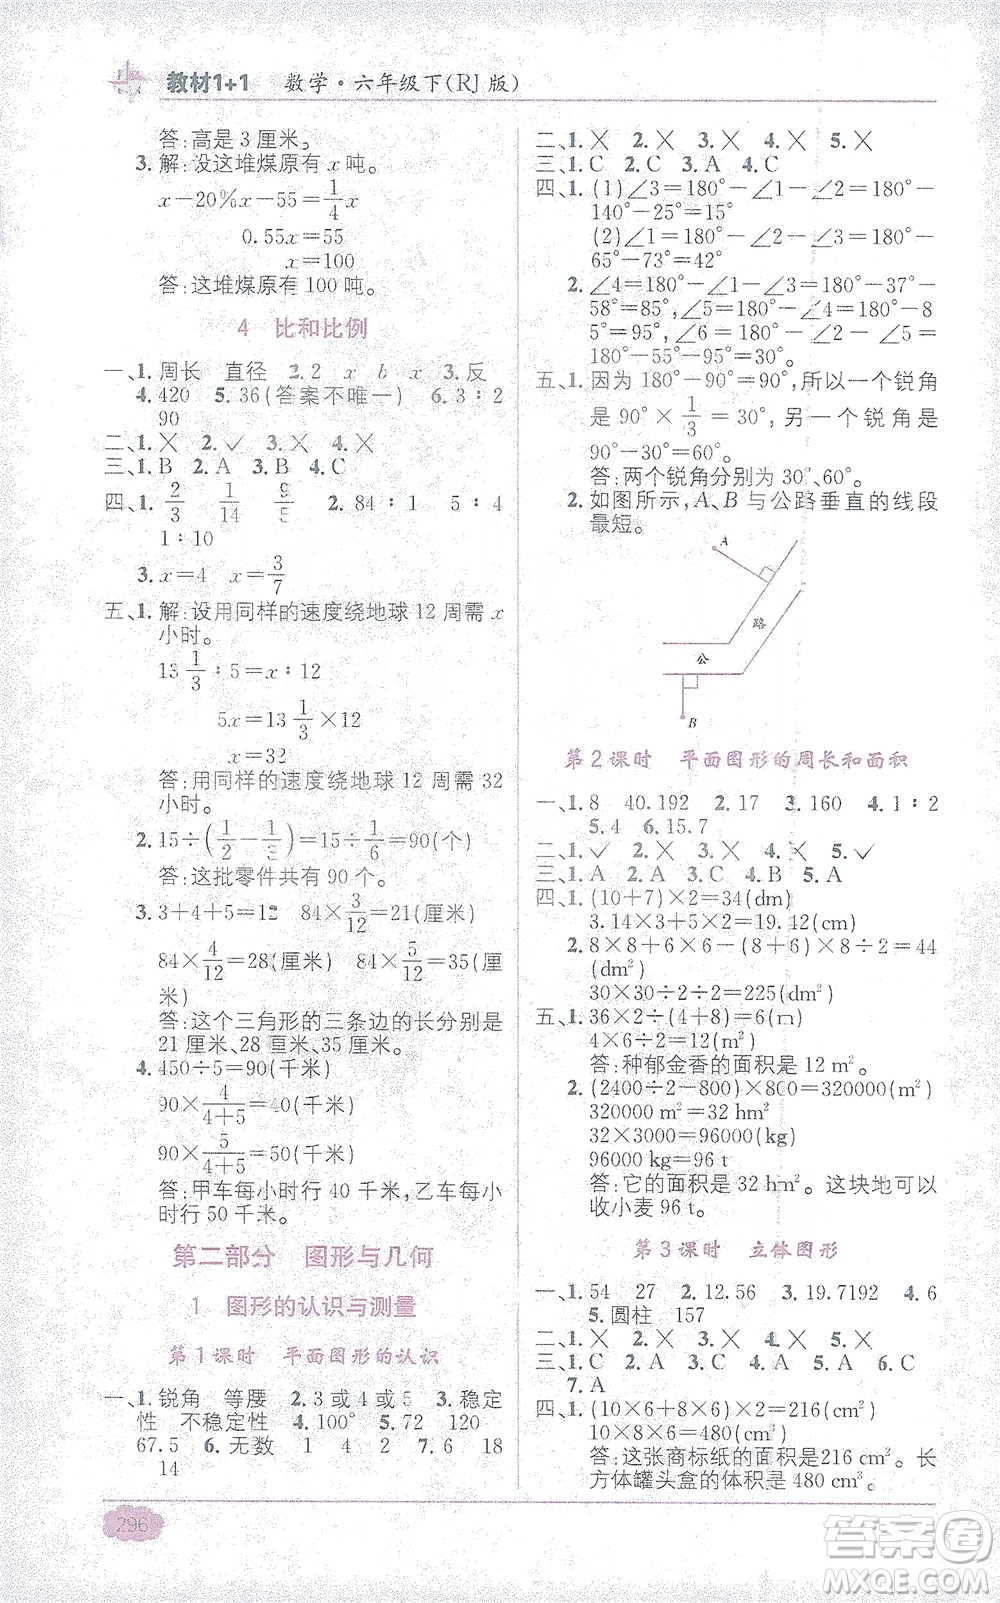 教材1+1 数学·六年级下(RJ版)
答:高是 3 厘米。
3. 解:设这堆煤原有 x 吨。
x－20%x－55＝1/4 x
0.55x＝55
x＝100
答:这堆煤原有 100 吨。
4 比和比例
一、1. 周长 直径 2. 2 x b x 3. 反
4. 420 5. 36(答案不唯一) 6. 3∶2
90
二、1. × 2. ✓ 3. × 4. ×
三、1. B 2. A 3. B 4. C
四、1. 2/3 1/14 9/5 2. 84∶1 5∶4
1∶10
3. x＝4 x＝3/7
五、1. 解:设用同样的速度绕地球 12 周需 x
小时。
13 1/3∶5＝x∶12
5x＝13 1/3×12
x＝32
答:用同样的速度绕地球 12 周需 32
小时。
2. 15÷(1/2－1/3)＝15÷1/6＝90(个)
答:这批零件共有 90 个。
3. 3＋4＋5＝12 84×3/12＝21(厘米)
84×4/12＝28(厘米) 84×5/12＝35(厘
米)
答:这个三角形的三条边的长分别是
21 厘米、28 厘米、35 厘米。
4. 450÷5＝90(千米)
90×4/(4＋5)＝40(千米)
90×5/(4＋5)＝50(千米)
答:甲车每小时行 40 千米,乙车每小
时行 50 千米。
第二部分 图形与几何
1 图形的认识与测量
第 1 课时 平面图形的认识
一、1. 锐角 等腰 2. 3 或 4 或 5 3. 稳定
性 不稳定性 4. 100° 5. 72 120
67.5 6. 无数 1 4 2 7. 6 18
14
296
二、1. × 2. × 3. × 4. × 5. ×
三、1. C 2. C 3. A 4. C
四、1. (1)∠3＝180°－∠1－∠2＝180°－
140°－25°＝15°
(2)∠1＝180°－∠2－∠3＝180°－
65°－73°＝42°
2. ∠4＝180°－∠1－∠3＝180°－37°－
58°＝85°,∠5＝180°－∠4＝180°－8
5°＝95°,∠6＝180°－∠2－∠5＝180°－
55°－95°＝30°。
五、1. 因为 180°－90°＝90°,所以一个锐角
是 90°×1/3＝30°,另一个锐角是
90°－30°＝60°。
答:两个锐角分别为 30°、60°。
2. 如图所示,A、B 与公路垂直的线段
最短。
A
路
公
B
第 2 课时 平面图形的周长和面积
一、1. 8 40.192 2. 17 3. 160 4. 1∶2
5. 4 6. 15.7
二、1. ✓ 2. × 3. × 4. × 5. ✓
三、1. A 2. A 3. C 4. B 5. A
四、1. (10＋7)×2＝34(dm)
3.14×3＋5×2＝19.42(cm)
2. 8×8＋6×6－(8＋6)×8÷2＝44
(dm²)
30×30÷2÷2＝225(dm²)
五、1. 36×2÷(4＋8)＝6(m)
4×6÷2＝12(m²)
答:种郁金香的面积是 12 m²。
2. (2400÷2－800)×800＝320000(m²)
320000 m²＝32 hm²
32×3000＝96000(kg)
96000 kg＝96 t
答:它的面积是 32 hm²。这块地可以
收小麦 96 t。
第 3 课时 立体图形
一、1. 54 27 2. 12.56 3. 19.7192 4. 6
5. 圆柱 157
二、1. × 2. × 3. × 4. × 5. ×
三、1. C 2. A 3. B 4. C 5. A 6. C
7. A
四、1. (10×6＋8×6)×2＝216(cm²)
10×8×6＝480(cm³)
答:这张商标纸的面积是216 cm²。长
方体罐头盒的体积是 480 cm³。
答案圈